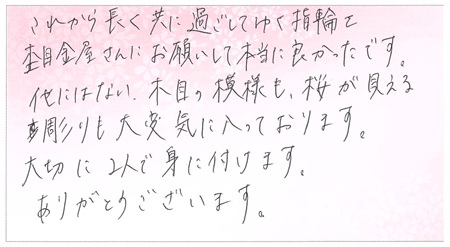 これから長く共に過ごしてゆく指輪を
杢目金屋さんにお願いして本当に良かったです。
他にはない、木目の模様も、桜が見える
彫りも大変気に入っております。
大切に2人で身に付けます。
ありがとうございます。